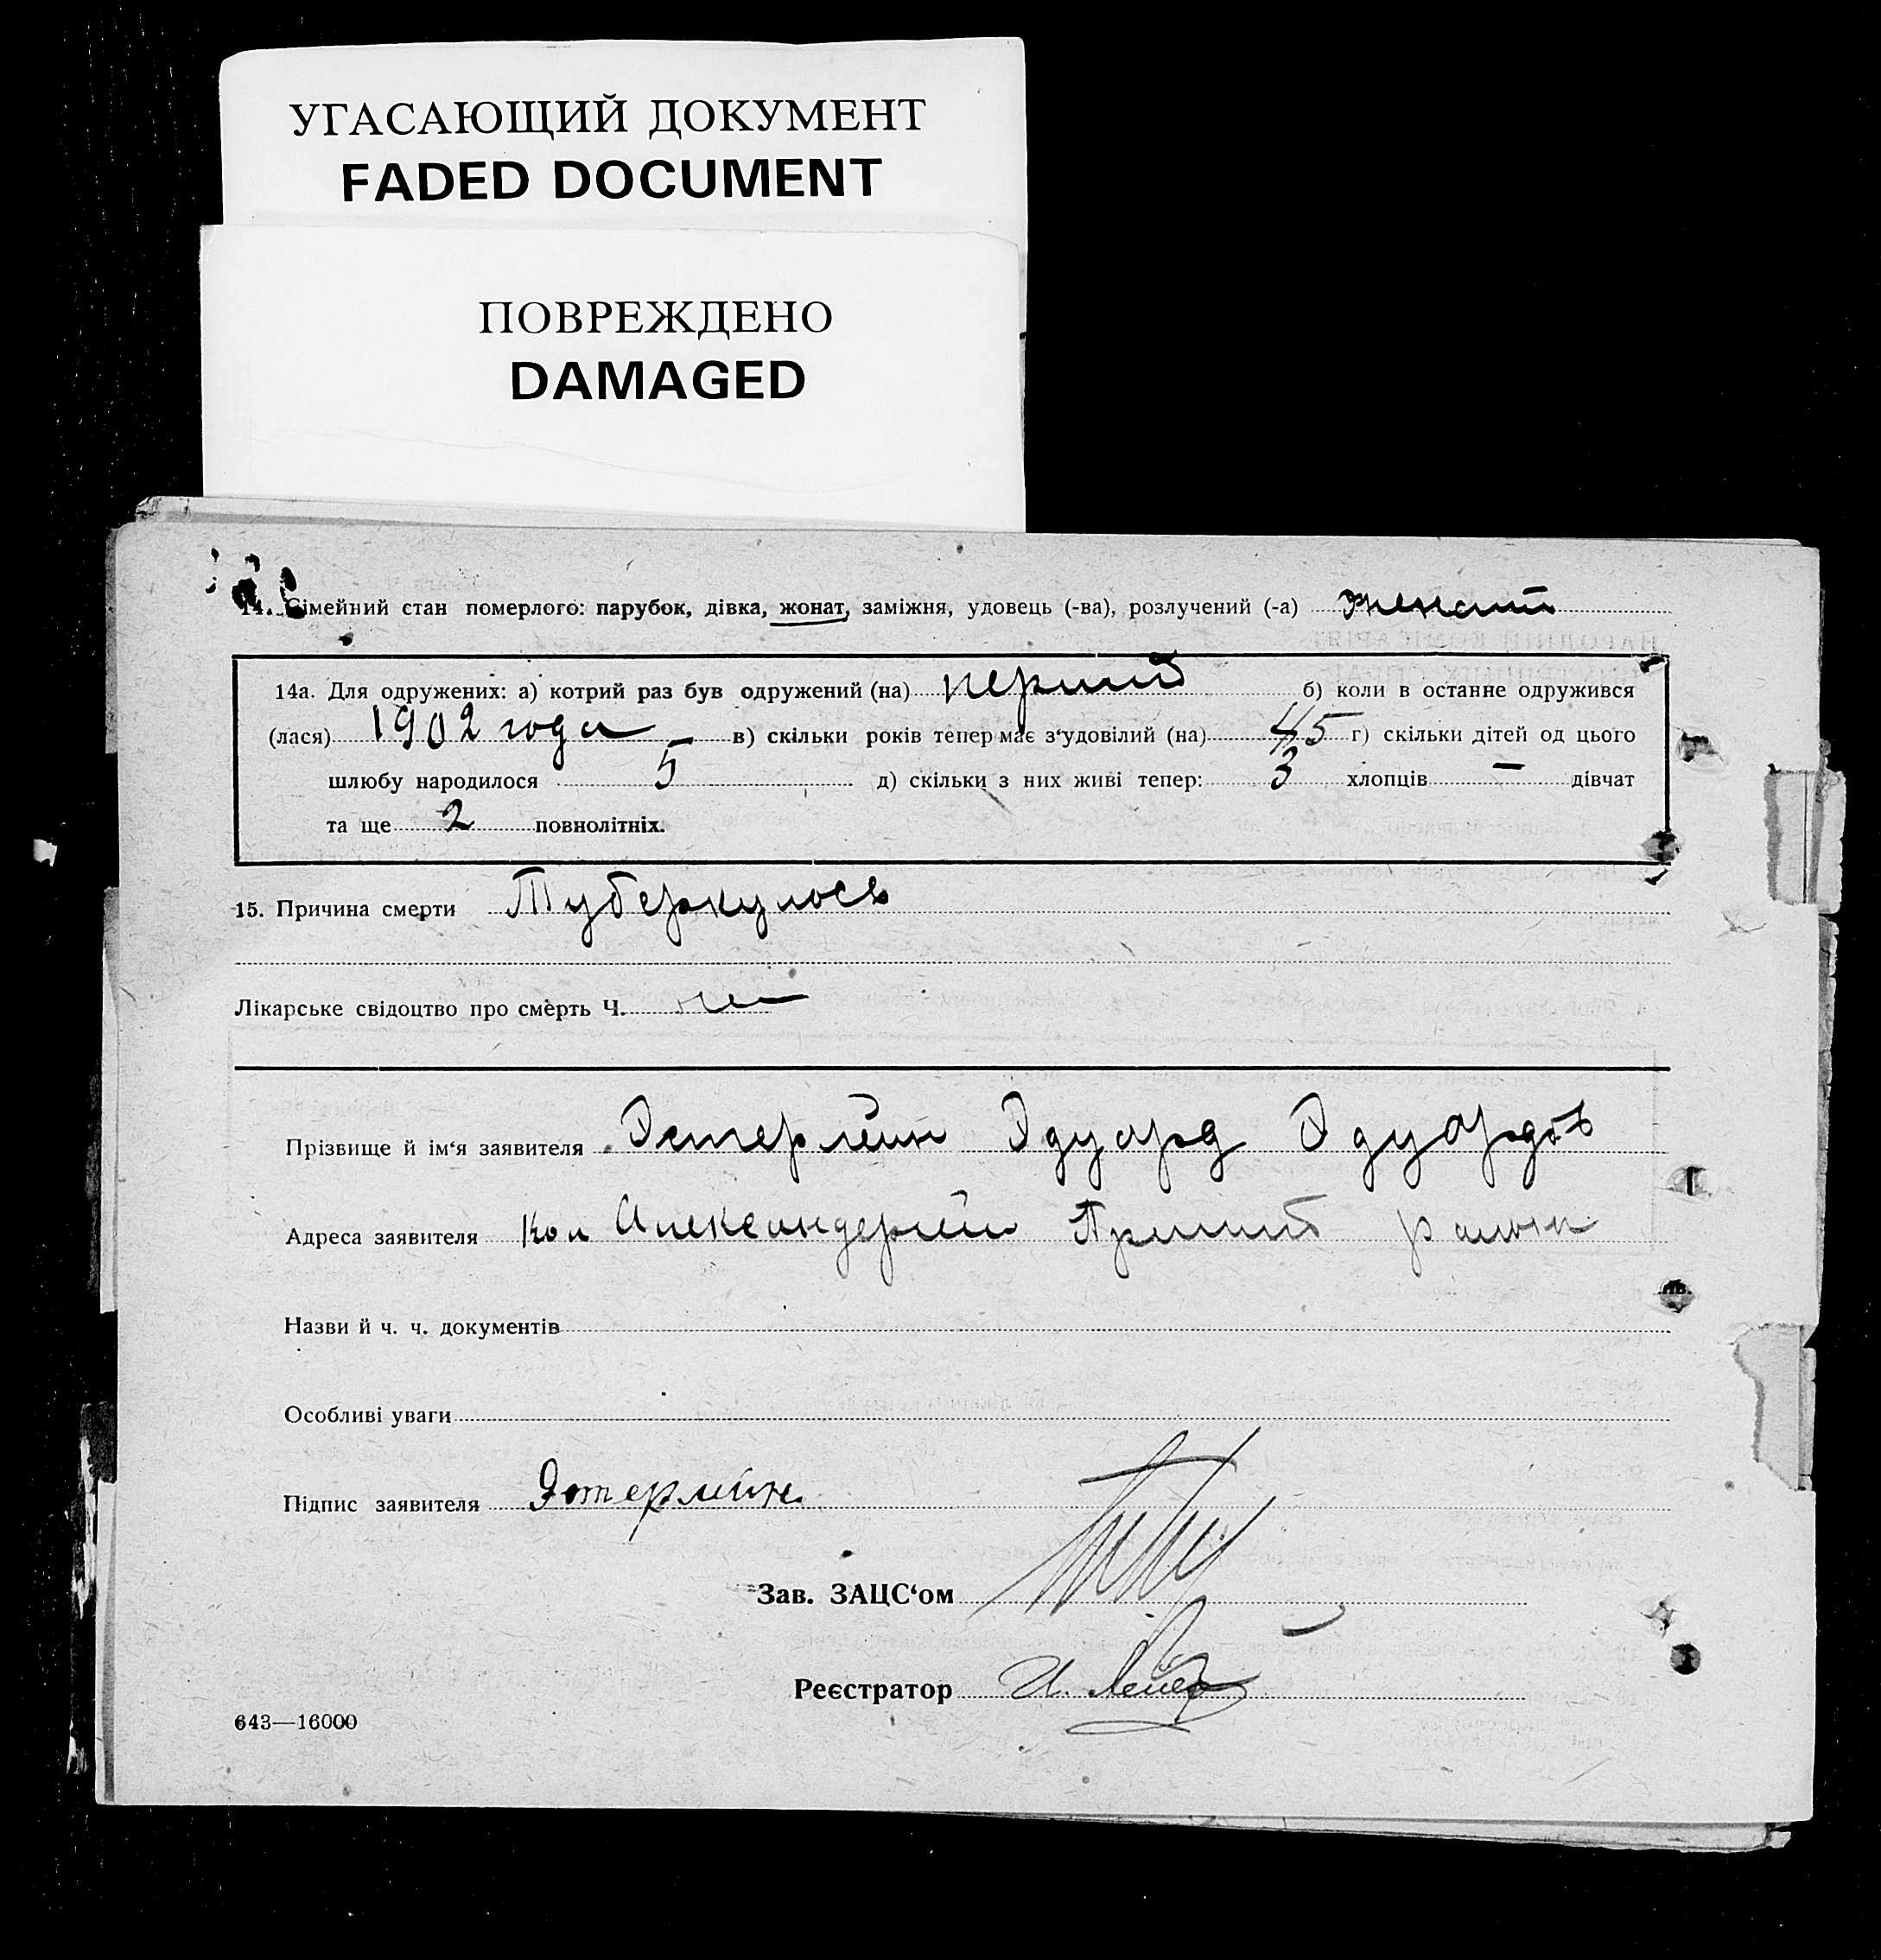 УГАСАЮЩИЙ ДОКУМЕНТ
FADED DOCUMENT
ПОВРЕЖДЕНО
DAMAGED
14. Сімейний стан померлого: парубок, дівка, жонат, заміжня, удовець (-ва), розлучений (-а) женат
14а. Для одружених: а) котрий раз був одружений (на) перший б) коли в останне одружився
(лася) 1902 года в) скільки років тепер має з‘удовілий (на) 45 г) скільки дітей од цього
шлюбу народилося 5 д) скільки з них живі тепер: 3 хлопців — дівчат
та ще 2 повнолітніх.
15. Причина смерти Туберкулосъ
Лікарське свідоцтво про смерть Ч. нет
Прізвище й ім‘я заявителя Эстерлейн Эдуард Эдуардов
Адреса заявителя Кол Александергейм района
Назви й ч. ч. документів
Особливі уваги
Підпис заявителя Эстерлейн
Зав. ЗАЦС‘ом
Реєстратор И.
643—16000